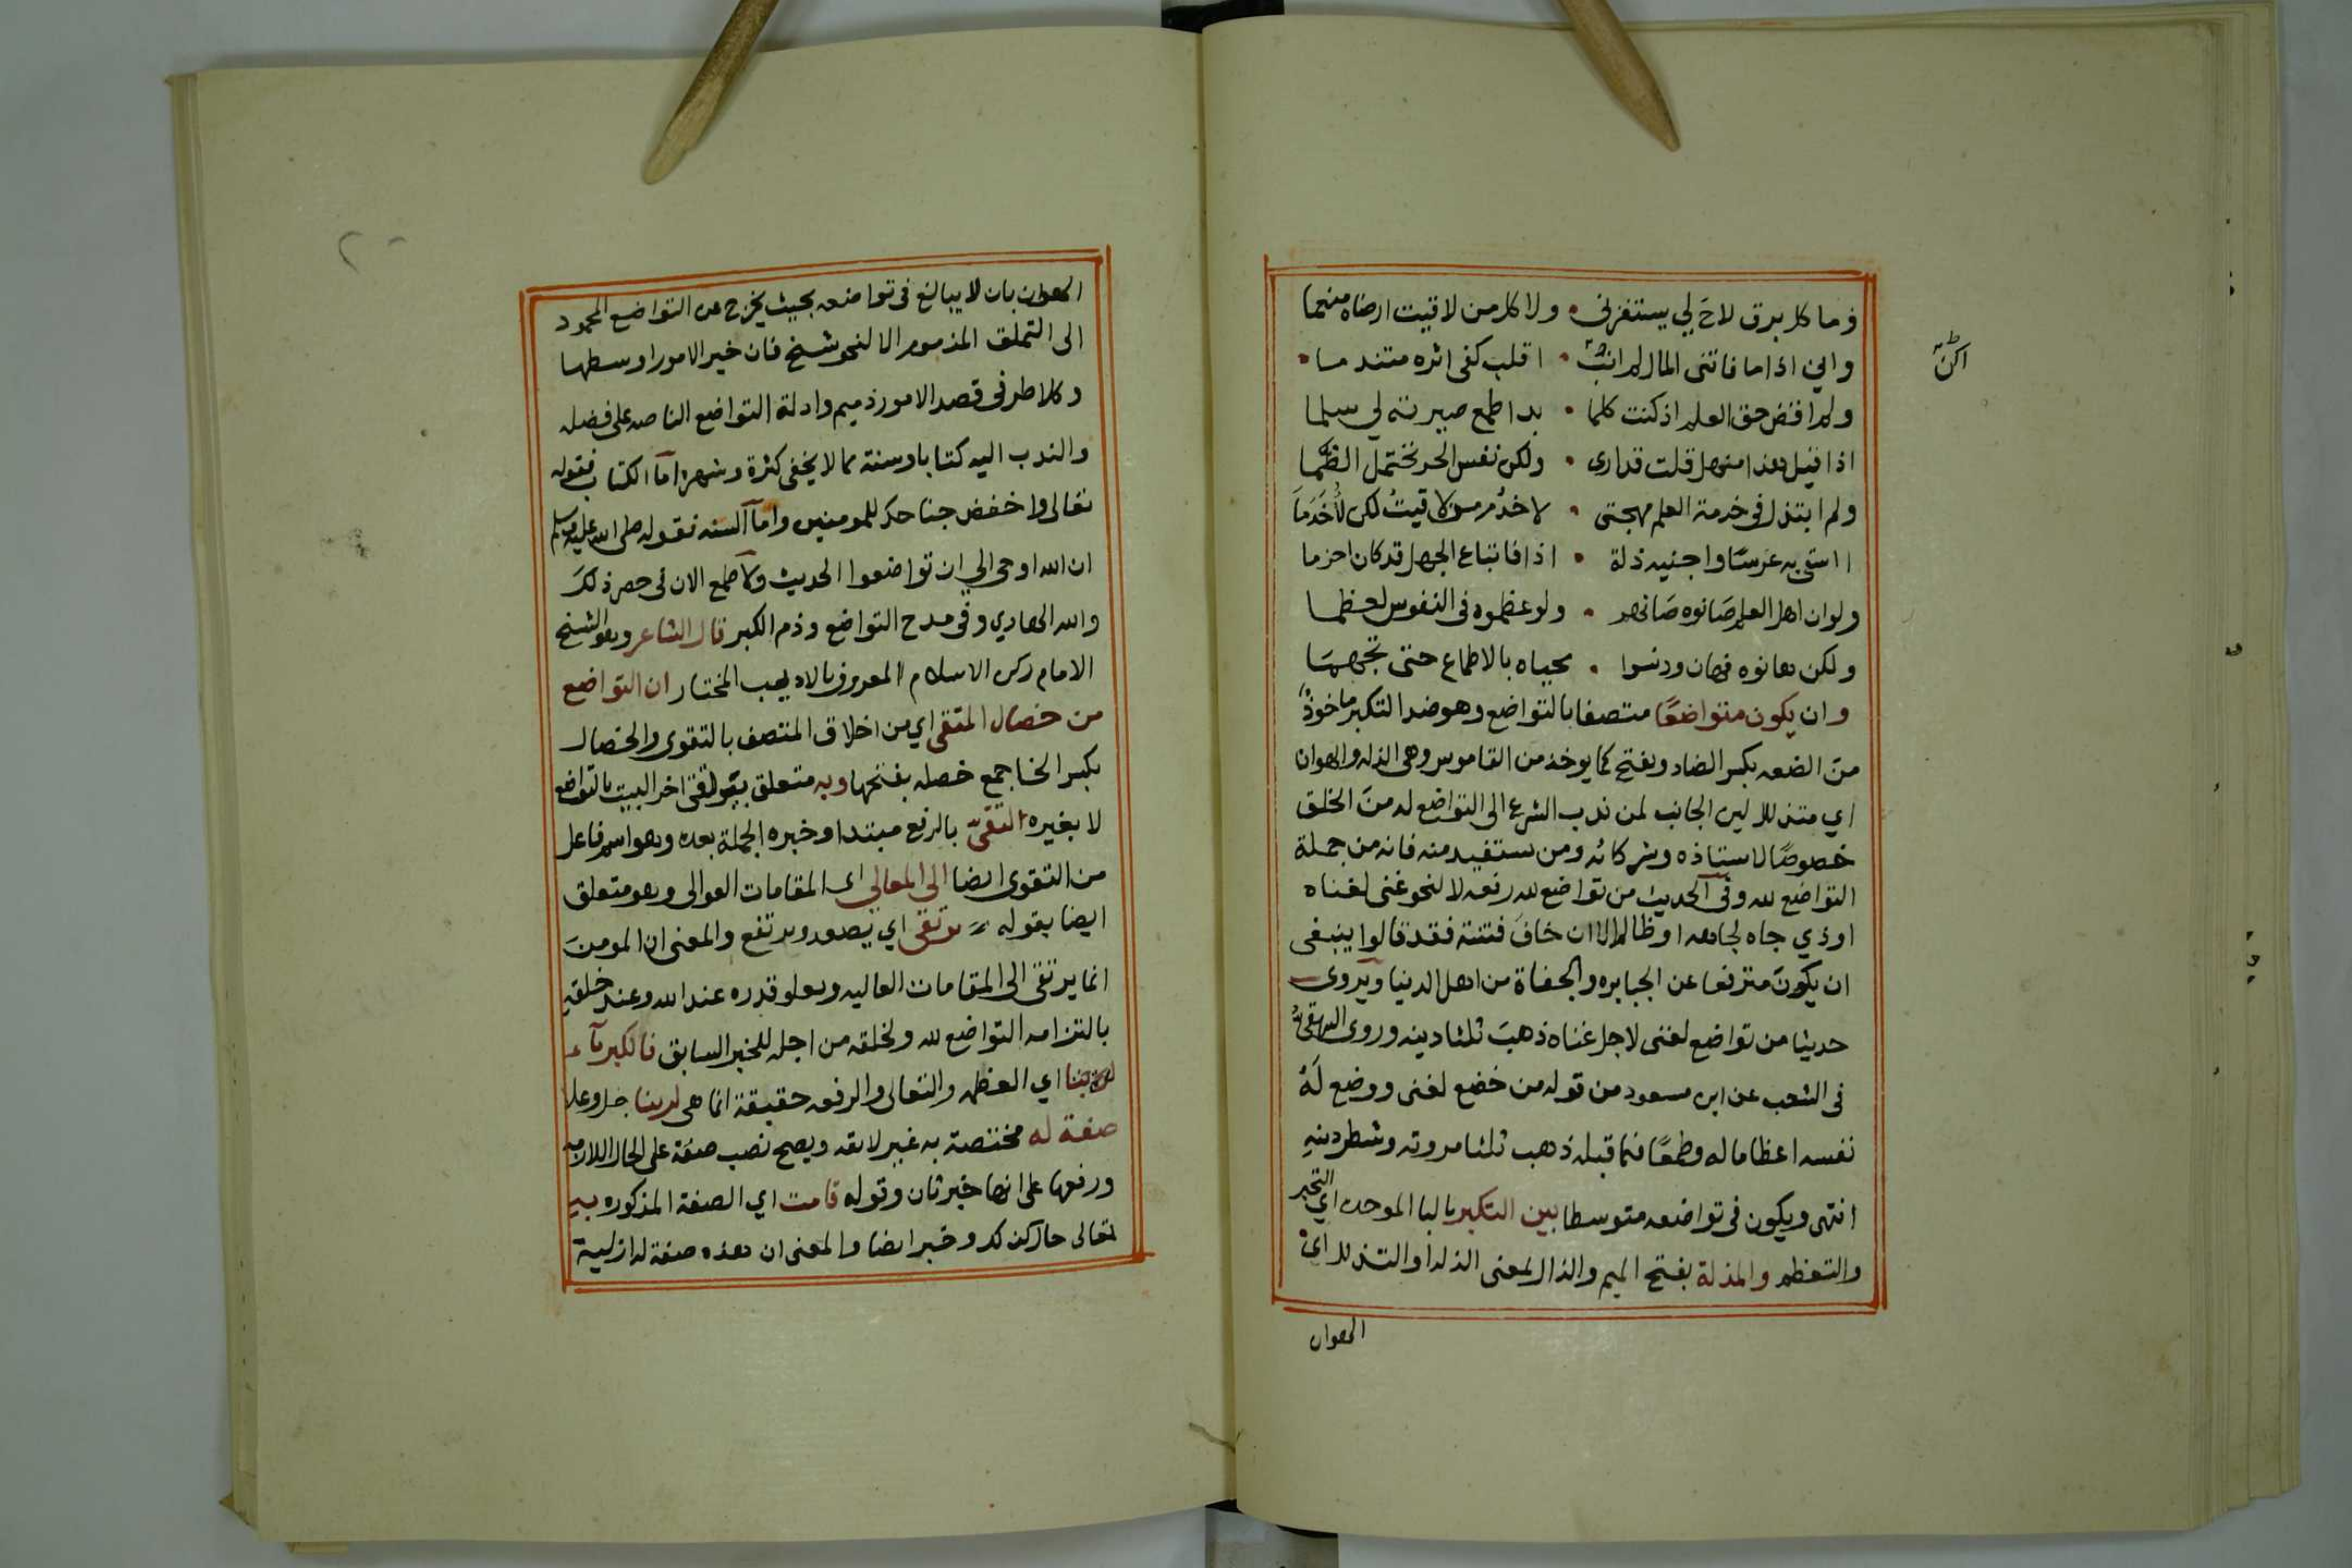 وما كل برق لاح لي يستفزني • ولا كل من لاقيت ارضاه منعما
واني اذا ما فاتني المال لم ابت • اقلب كفي اثره متندما •
اكن
ولم اقض حق العلم اذ كنت كلما • بدا طمع صيرته لي سلما
اذا قيل هذا منهل قلت قد ارى • ولكن نفس الحر تحتمل الظما
ولم ابتذل في خدمة العلم مهجتي • لاخدم من لاقيت لكن لأخدما
ااسقي به غرسا واجنيه ذلة • اذا فاتباع الجهل قد كان احزما
ولو ان اهل العلم صانوه صانهم • ولو عظموه في النفوس لعظما
ولكن هانوه فهان ودنسوا • محياه بالاطماع حتى تجهما
وان يكون متواضعا متصفا بالتواضع وهو ضد التكبر ماخوذ
من الضعه بكسر الضاد وبفتح كما يوخذ من القاموس وهي الذله والهوان
اي متذلل لين الجانب لمن ندب الشرع الى التواضع له من الخلق
خصوصا لاستاذه وشركائه ومن يستفيد منه فانه من جملة
التواضع لله وفي الحديث من تواضع لله رفعه لا لنحو غني لغناه
او ذي جاه لجاهه او ظالم الا ان خاف فتنة فقد قالوا ينبغي
ان يكون مترفعا عن الجبابره والجفاة من اهل الدنيا ويروى
حديثا من تواضع لغني لاجل غناه ذهب ثلثا دينه وروى البيهقي
في الشعب عن ابن مسعود من قوله من خضع لغني ووضع له
نفسه اعظاما له وطمعا فيما قبله ذهب ثلثا مروته وشطر دينه
انتهى ويكون في تواضعه متوسطا بين التكبر بالبا الموحده اي التجبر
والتعظم والمذلة بفتح الميم والذال بمعنى الذل او التذلل اي
الهوان
الهوان بان لا يبالغ في تواضعه بحيث يخرج عن التواضع المحمود
الى التملق المذموم الا لنحو شيخ فان خير الامور اوسطها
وكلا طرفي قصد الامور ذميم وادلة التواضع الناصه على فضله
والندب اليه كتابا وسنة مما لا يخفى كثرة وشهرة اما الكتاب فقوله
تعالى واخفض جناحك للمومنين واما السنه فقوله صلى الله عليه وسلم
ان الله اوحى الي ان تواضعوا الحديث ولا طمع الان في حصر ذلك
والله الهادي وفي مدح التواضع وذم الكبر قال الشاعر وهو الشيخ
الامام ركن الاسلام المعروف بالاديب المختار ان التواضع
من خصال المتقي اي من اخلاق المتصف بالتقوى والخصال
بكسر الخا جمع خصله بفتحها وبه متعلق بقوله يرتقي اخر البيت بالتواضع
لا بغيره التقي بالرفع مبتدا وخبره الجملة بعده وهو اسم فاعل
من التقوى ايضا الى المعالي اي المقامات العوالي وهو متعلق
ايضا بقوله يرتقي اي يصعد ويرتفع والمعنى ان المومن
انما يرتقي الى المقامات العاليه ويعلو قدره عند الله وعند خلقه
بالتزامه التواضع لله ولخلقه من اجله للخبر السابق فالكبرياء
لربنا اي العظمه والتعالى والرفعه حقيقة انما هي لربنا جل وعلا
صفة له مختصة به غير لايقه ويصح نصب صفة على الحال اللازمه
ورفعها على انها خبر ثان وقوله قامت اي الصفة المذكوره به
تعالى حال كذلك وخبر ايضا والمعنى ان هذه صفة له ازلية